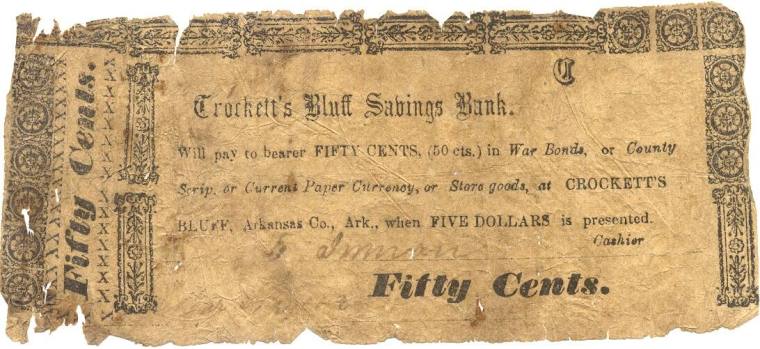 Fifty Cents.
C
Crockett's Bluff Savings Bank.
Will pay to bearer FIFTY CENTS, (50 cts.) in War Bonds, or County
Scrip, or Current Paper Currency, or Store goods, at CROCKETT'S
BLUFF, Arkansas Co., Ark., when FIVE DOLLARS is presented.
Cashier
Fifty Cents.